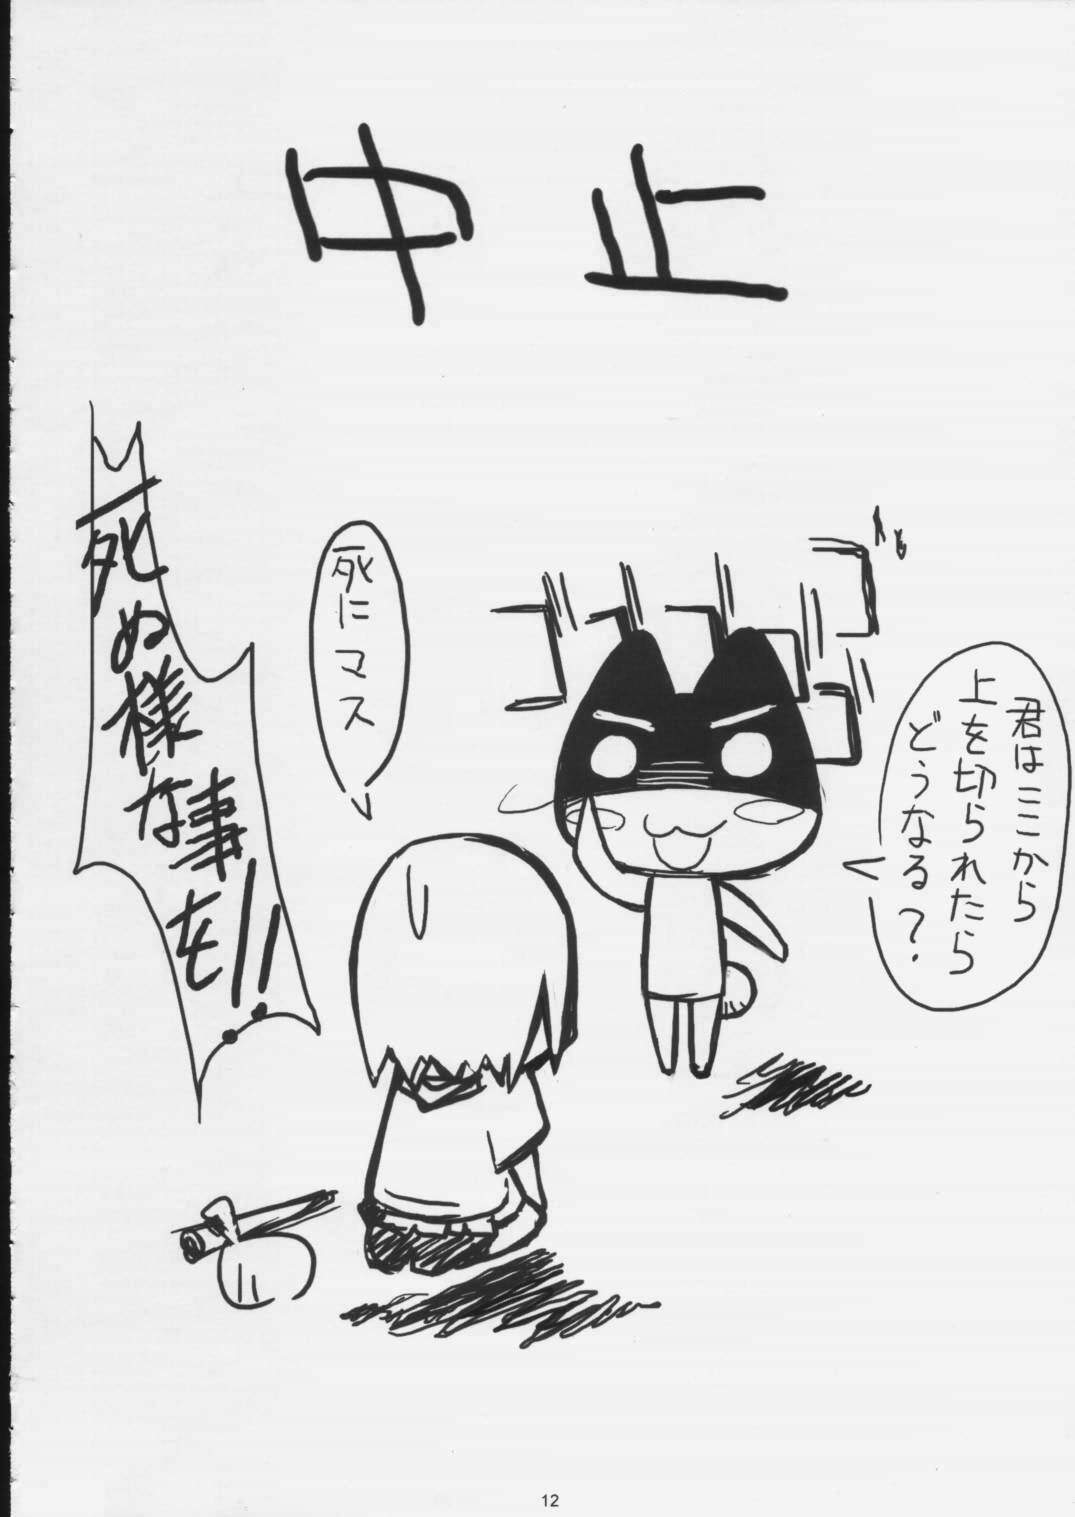 中止
君はここから
上を切られたら
どうなる?
死にマス
死ぬ様な事を!!
12